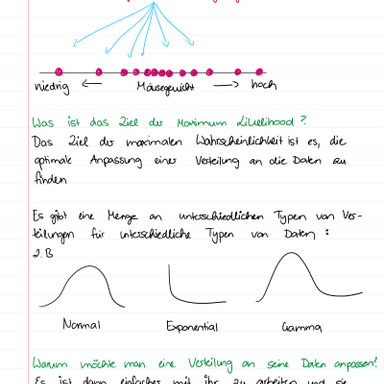 niedrig ← Mäusegewicht → hoch
Was ist das Ziel der Maximum Likelihood?
Das Ziel der maximalen Wahrscheinlichkeit ist es, die
optimale Anpassung einer Verteilung an die Daten zu
finden
Es gibt eine Menge an unterschiedlichen Typen von Ver-
teilungen für unterschiedliche Typen von Daten:
z.B
Normal Exponential Gamma
Warum möchte man eine Verteilung an seine Daten anpassen?
Es ist dann einfacher mit ihr zu arbeiten und sie